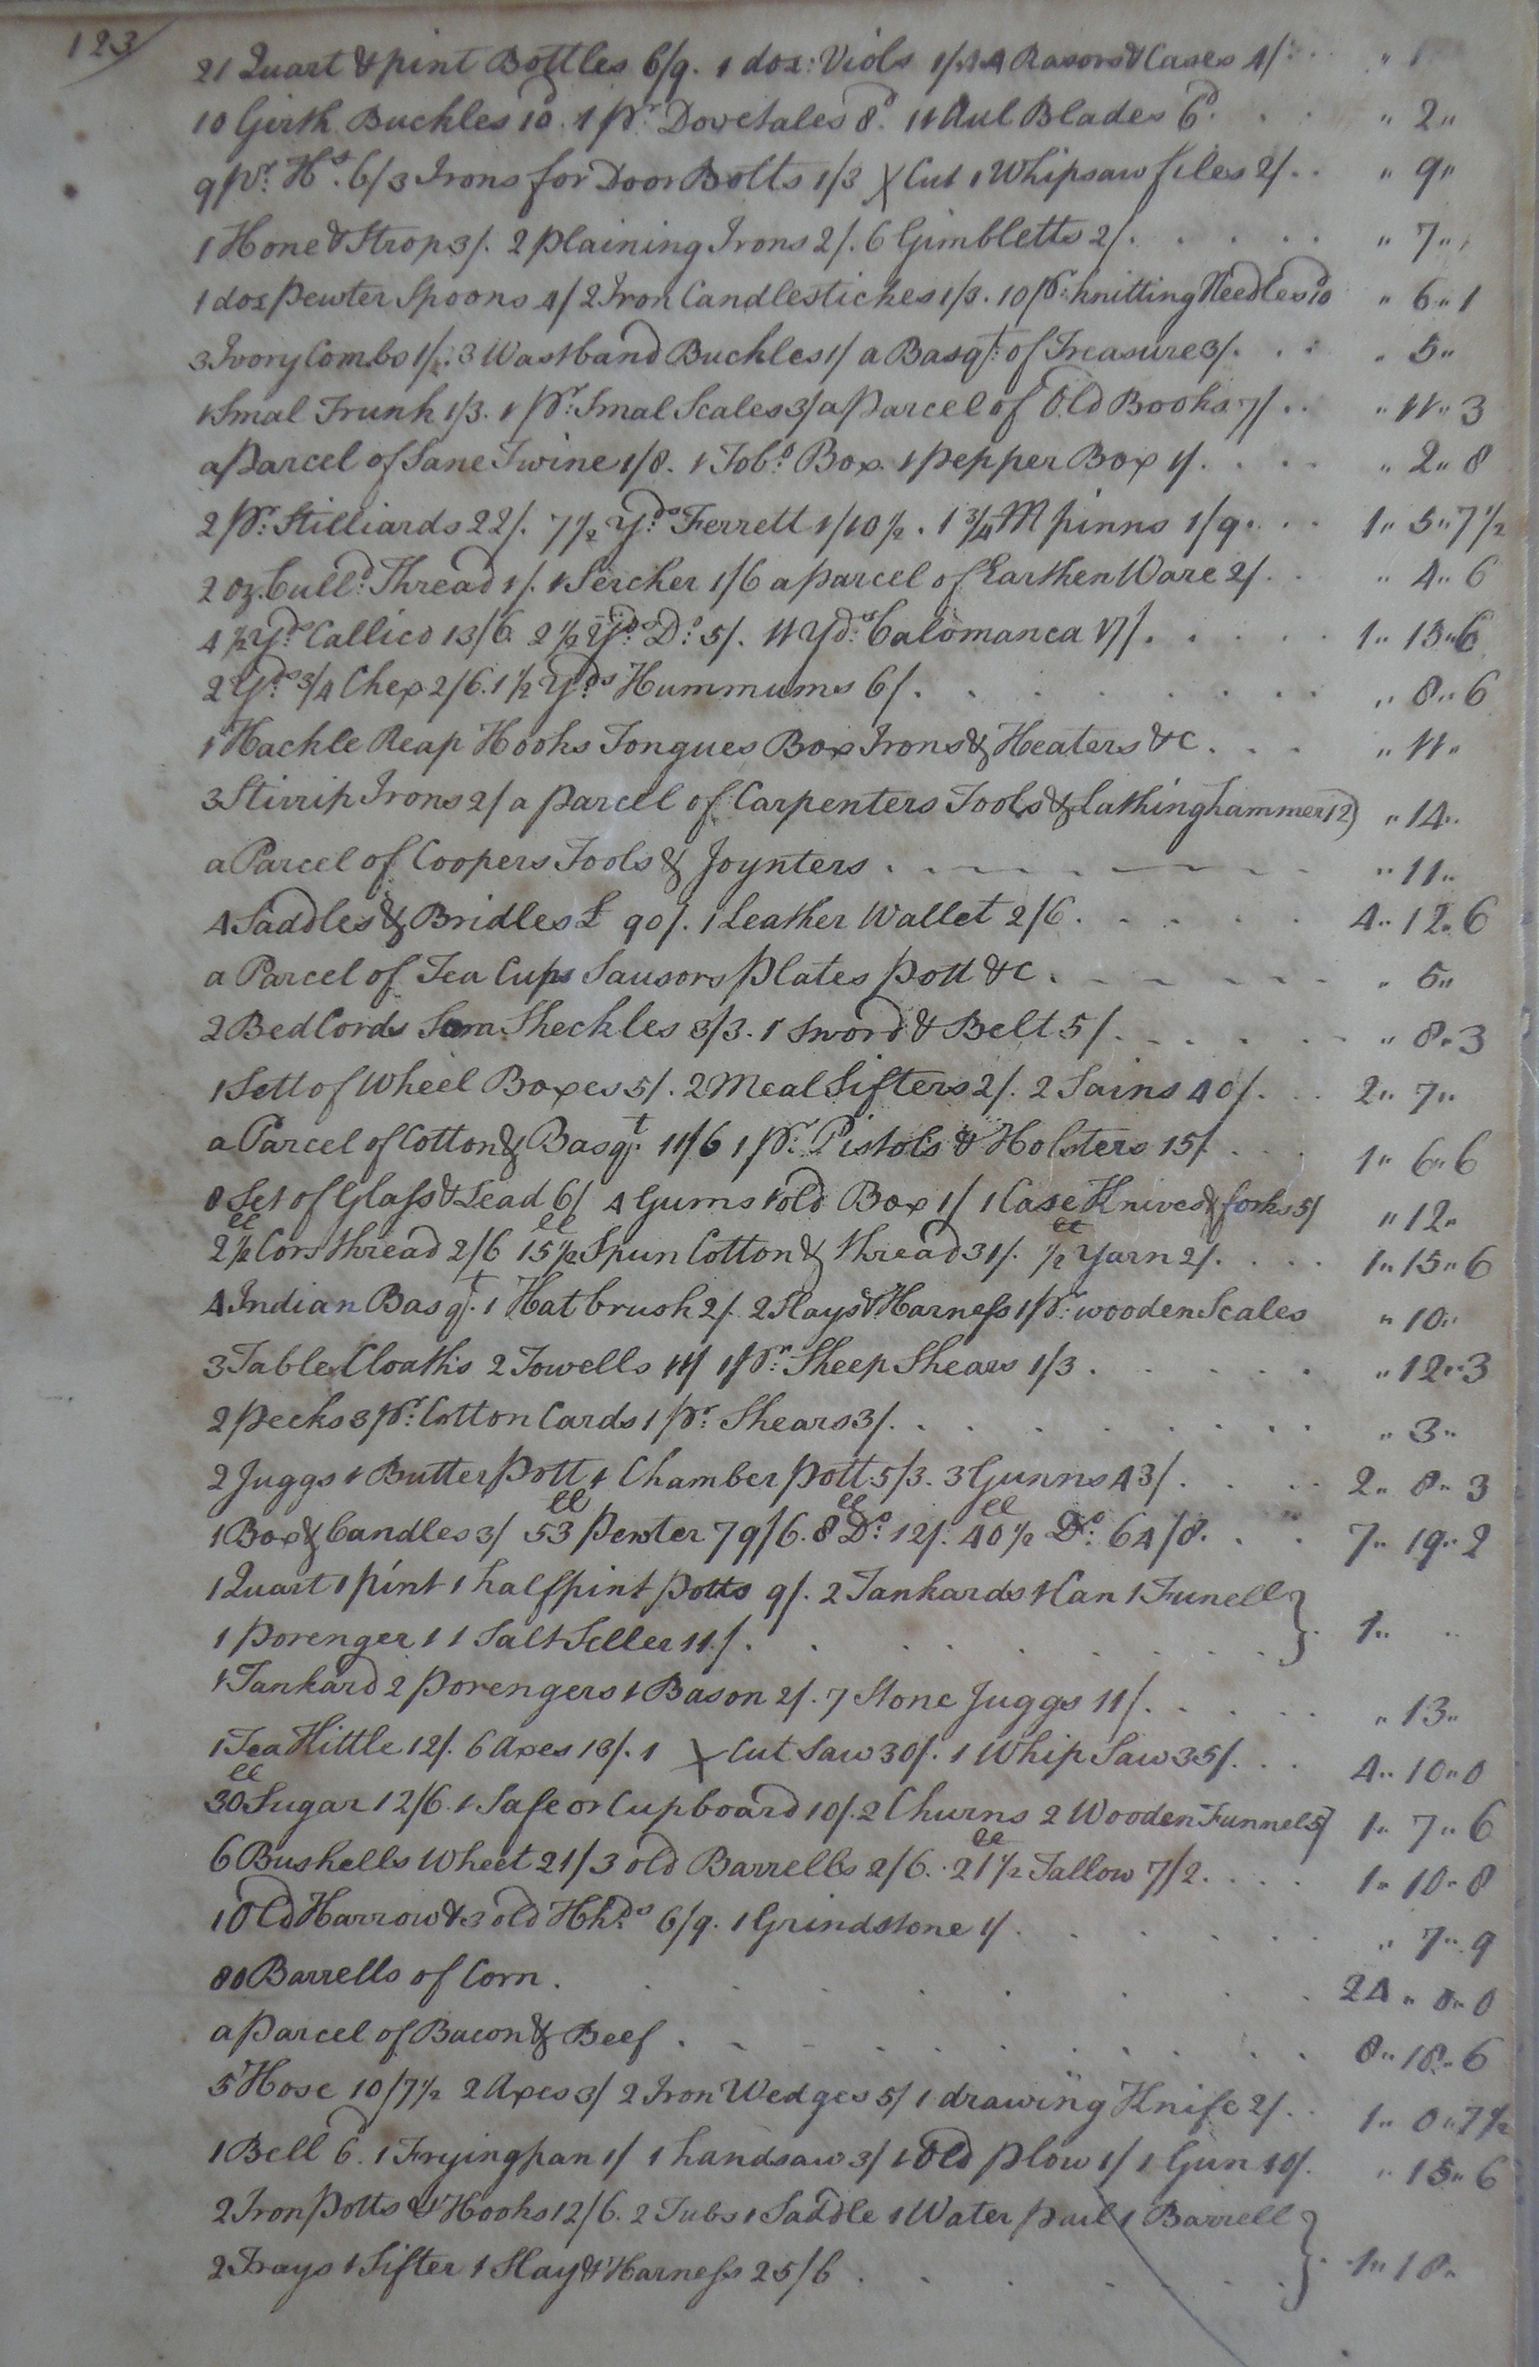 123
21 Quart & pint Bottles 6/9. 1 doz: Viols 1/ Rasors & Cases 4/ " 1
10 Girth Buckles 10d. 1 pr. Dovetales 8d. 11 Aul Blades 6d. " 2 "
9 pr. Hs. 6/ 3 Irons for Door Bolts 1/3 X Cut 1 Whipsaw files 2/. " 9 "
1 Hone & Strop 3/. 2 plaining Irons 2/. 6 Gimbletts 2/. " 7 "
1 doz pewter Spoons 4/ 2 Iron Candlestickes 1/3. 10 pr: knitting Needles 10 " 6 " 1
3 Ivory Combs 1/. 3 Wastband Buckles 1/ a Basqt: of Treasure 3/. " 5 "
1 Smal Trunk 1/3. 1 pr: Smal Scales 3/ a parcel of Old Books 7/ " 11 " 3
a parcel of Sane Twine 1/8. 1 Tobo Box 1 pepper Box 1/. " 2 " 8
2 pr. Stilliards 22/. 7 1/2 Yds Ferrett 1/10 1/2. 1 3/4 M pinns 1/9. 1 " 5 " 7 1/2
2 oz. Culld Thread 1/. 1 Sercher 1/6 a parcel of Earthen Ware 2/. " 4 " 6
4 1/2 Yds Callico 13/6. 2 1/2 Yds Do: 5/. 11 Yds: Calomanca 17/. 1 " 15 " 6
2 Yds 3/4 Chex 2/6. 1 1/2 Yds Hummums 6/. " 8 " 6
1 Hackle Reap Hooks Tongues Box Irons & Heaters &c. " 11 "
3 Stirrip Irons 2/ a parcel of Carpenters Tools & Lathinghammer 12) " 14 "
a Parcel of Coopers Tools & Joynters " 11 "
4 Saddles & Bridles £ 90/. 1 Leather Wallet 2/6. 4 " 12 " 6
a Parcel of Tea Cups Sausors plates pott &c. " 5 "
2 Bed Cords Som Sheckles 3/3. 1 Sword & Belt 5/. " 8 " 3
1 Sett of Wheel Boxes 5/. 2 Meal Sifters 2/. 2 Sains 40/. 2 " 7 "
a Parcel of Cotton & Basqt. 11/6 1 pr. Pistols & Holsters 15/. 1 " 6 " 6
8 Set of Glass & Lead 6/ 4 Gums 1 old Box 1/ 1 Case Knives & forks 5/ " 12 "
2 1/2 ll Cors thread 2/6 15 1/2 ll Spun Cotton & thread 31/. 1/2 ll Yarn 2/. 1 " 15 " 6
4 Indian Basqt. 1 Hat brush 2/. 2 Slays & Harness 1 pr: wooden Scales " 10 "
3 Table Cloaths 2 Towells 11/ 1 pr: Sheep Shears 1/3. " 12 " 3
2 pecks 3 pr: Cotton Cards 1 pr: Shears 3/. " 3 "
2 Juggs 1 Butter pott 1 Chamber pott 5/3. 3 Gunns 43/. 2 " 8 " 3
1 Box & Candles 3/ 53 ll pewter 79/6. 8 ll Do: 12/. 40 1/2 ll Do: 64/8. 7 " 19 " 2
1 Quart 1 pint 1 half pint potts 9/. 2 Tankards 1 Can 1 Funell }
1 porenger 1 1 Salt Seller 11/. 1 "
1 Tankard 2 porengers 1 Bason 2/. 7 Stone Juggs 11/. " 13 "
1 Tea Kittle 12/. 6 Axes 13/. 1 X Cut Saw 30/. 1 Whip Saw 35/. 4 " 10 " 0
30 ll Sugar 12/6. 1 Safe or Cupboard 10/. 2 Churns 2 Wooden Funnels 5/ 1 " 7 " 6
6 Bushells Wheet 21/ 3 old Barrells 2/6. 21 1/2 ll Tallow 7/2. 1 " 10 " 8
1 Old Harrow & 3 old Hhds 6/9. 1 Grindstone 1/. " 7 " 9
80 Barrells of Corn. 24 " 0 " 0
a parcel of Bacon & Beef. 8 " 18 " 6
5 Hose 10/7 1/2 2 Axes 3/ 2 Iron Wedges 5/ 1 drawing Knife 2/. 1 " 0 " 7 1/2
1 Bell 6d. 1 Fryingpan 1/ 1 handsaw 3/ 1 Old plow 1/ 1 Gun 10/. " 15 " 6
2 Iron potts & Hooks 12/6. 2 Tubs 1 Saddle 1 Water pail 1 Barrell }
2 Trays 1 Sifter 1 Slay & Harness 25/6. 1 " 18 "